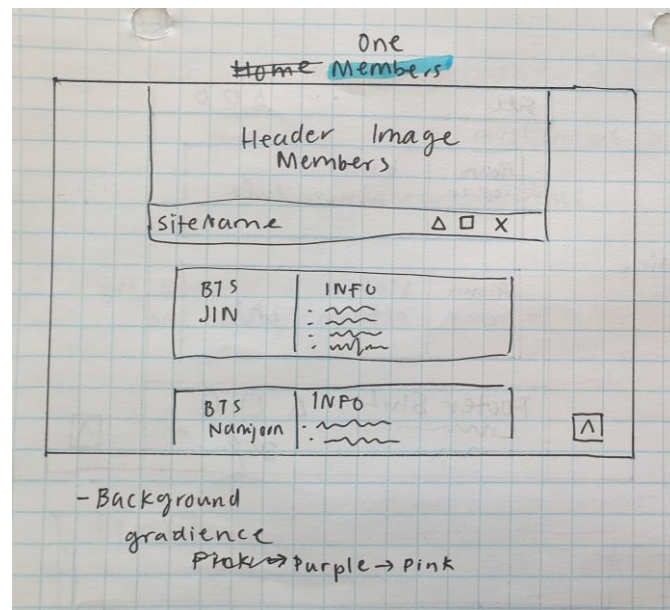 One
Home Members
Header Image
Members
SiteName △ □ X
BTS INFO
JIN
BTS INFO
Namjoon
- Background
gradience
Pink → Purple → Pink